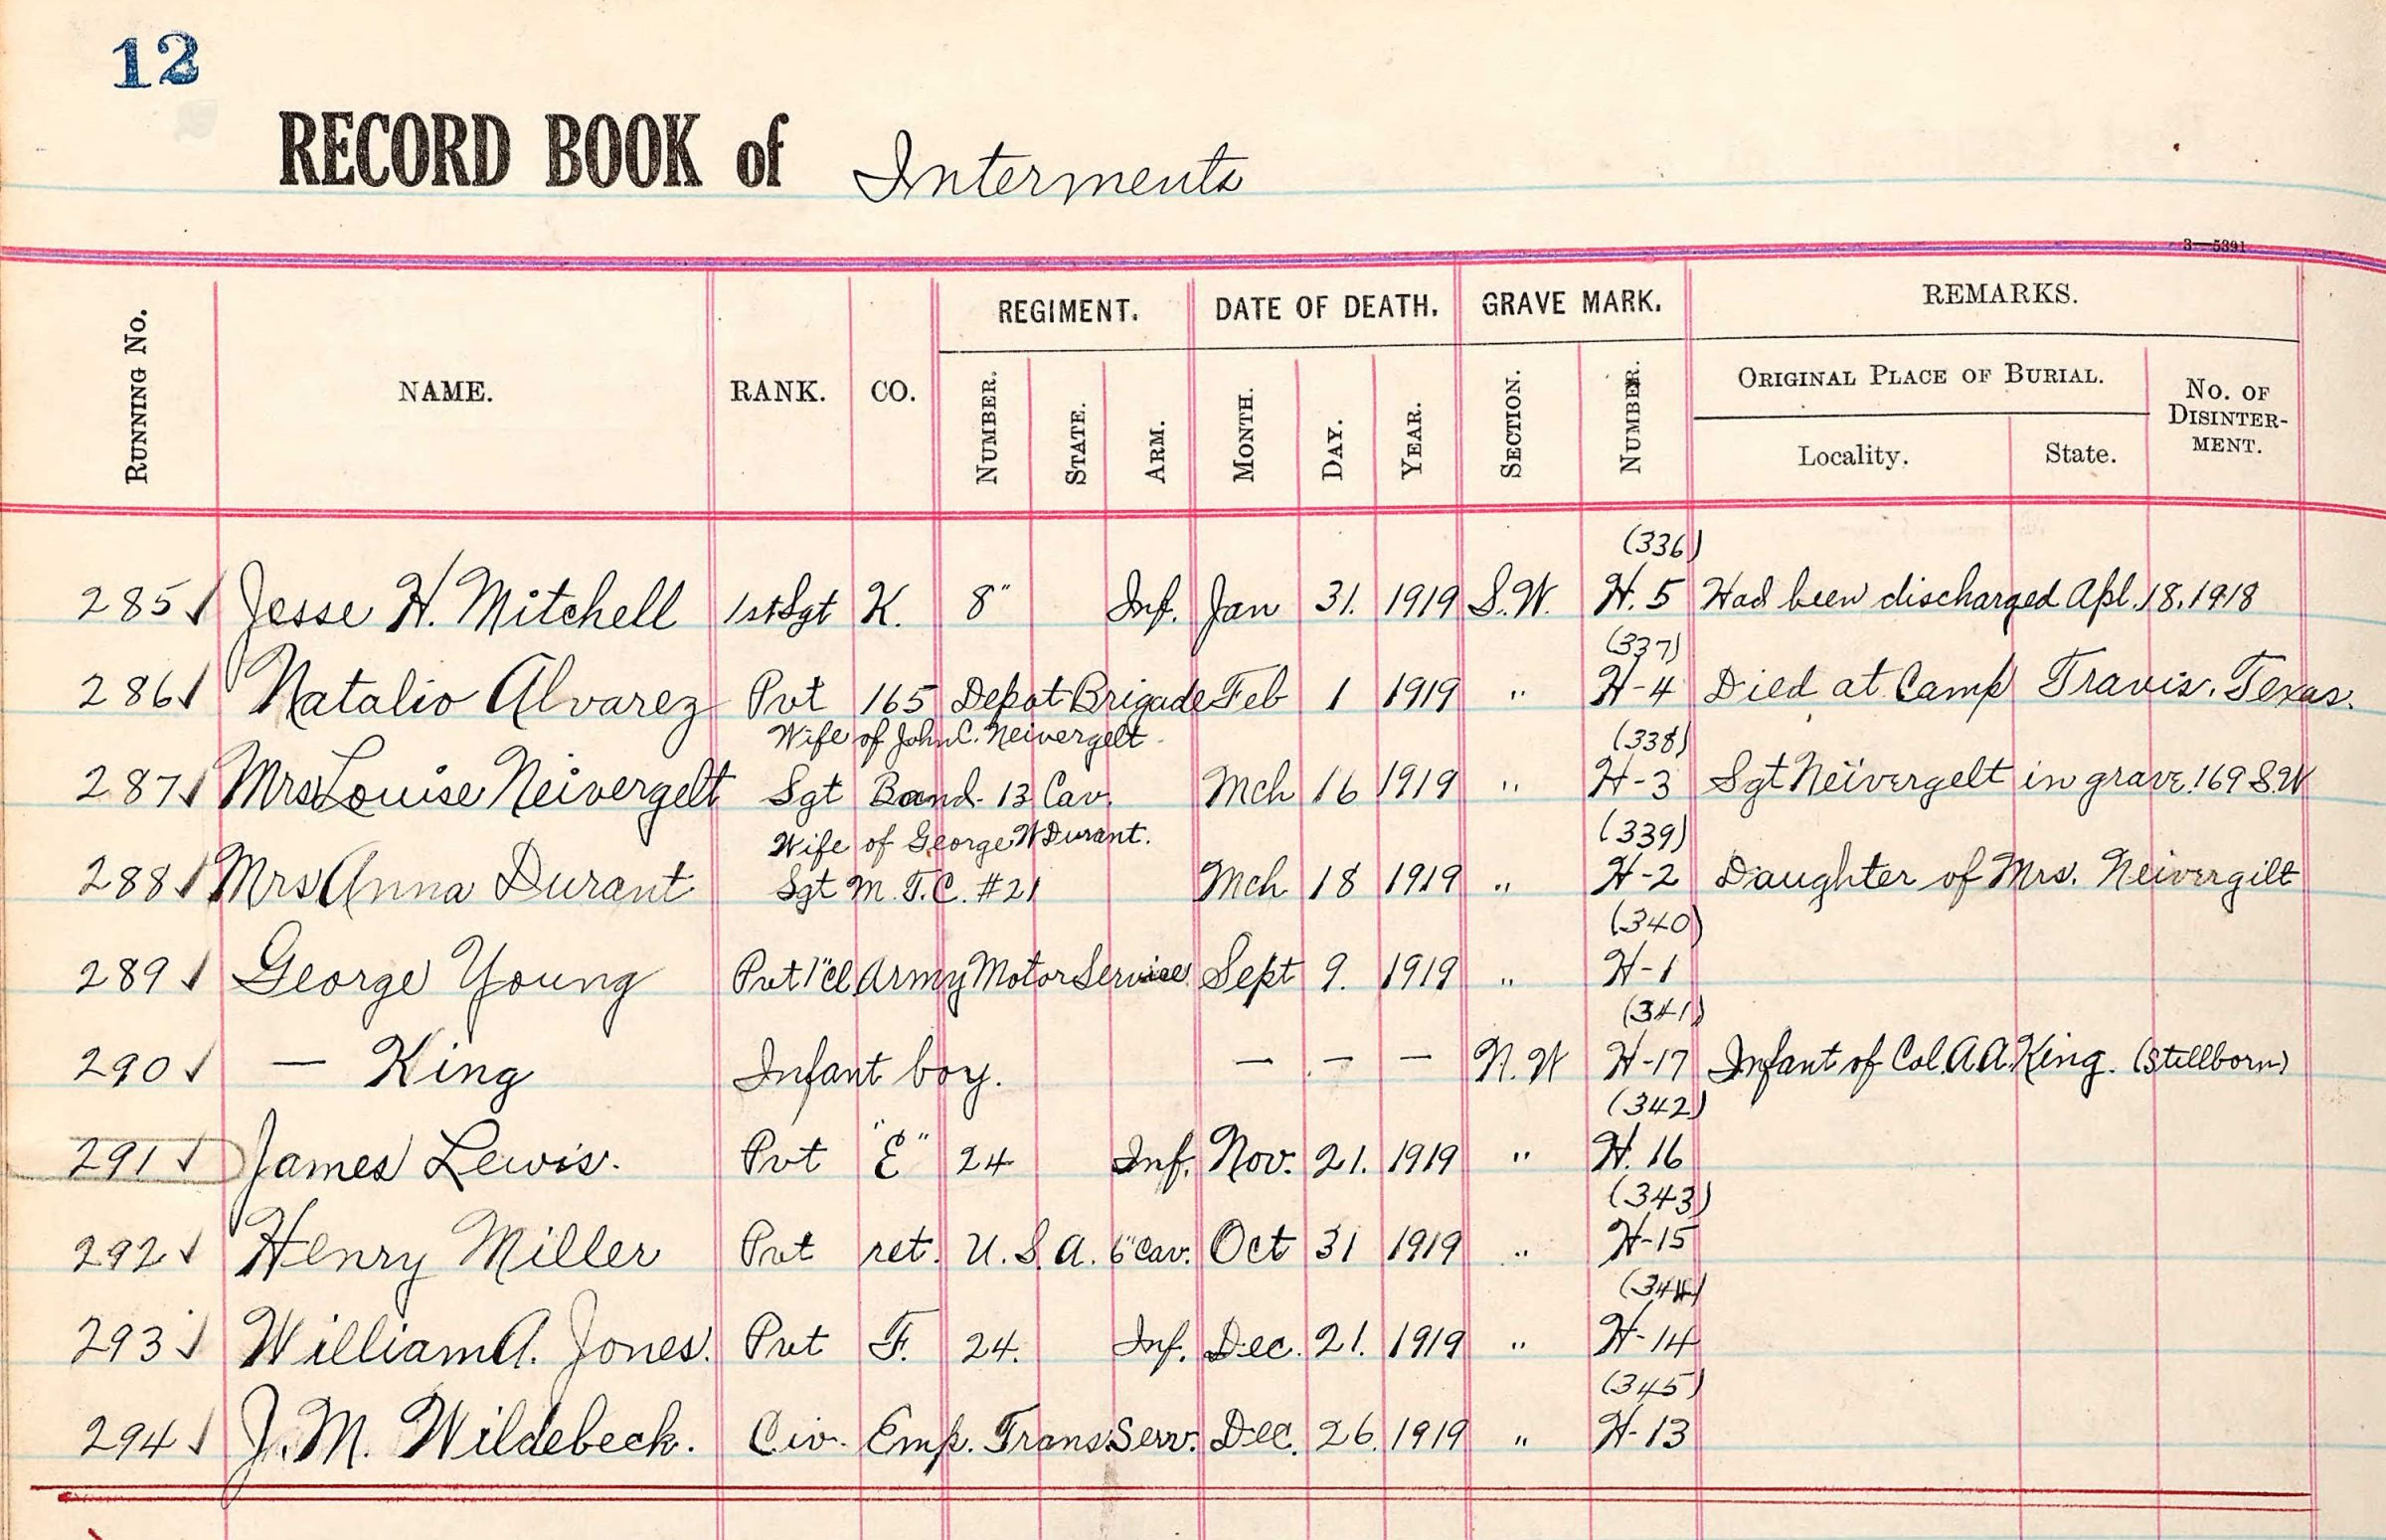 12
RECORD BOOK of Interments
3—5391
RUNNING No. NAME. RANK. CO. REGIMENT. DATE OF DEATH. GRAVE MARK. REMARKS.
NUMBER. STATE. ARM. MONTH. DAY. YEAR. SECTION. NUMBER. ORIGINAL PLACE OF BURIAL. No. OF DISINTER-MENT.
Locality. State.
(336)
285 ✓ Jesse H. Mitchell 1st Sgt K. 8" Inf. Jan 31. 1919 S.W. H. 5 Had been discharged Apl. 18. 1918
(337)
286 ✓ Natalio Alvarez Pvt 165 Depot Brigade Feb 1 1919 " H-4 Died at Camp Travis. Texas.
Wife of John C. Neivergelt (338)
287 ✓ Mrs Louise Neivergelt Sgt Band 13 Cav. Mch 16 1919 " H-3 Sgt Neivergelt in grave 169 S.W
Wife of George W Durant. (339)
288 ✓ Mrs Anna Durant Sgt M. T. C. #21 Mch 18 1919 " H-2 Daughter of Mrs. Neivergilt
(340)
289 ✓ George Young Pvt 1"cl Army Motor Service Sept 9. 1919 " H-1
(341)
290 ✓ — King Infant boy. — — — N. W H-17 Infant of Col. A A. King. (Stillborn)
(342)
291 ✓ James Lewis. Pvt "E" 24 Inf. Nov. 21. 1919 " H. 16
(343)
292 ✓ Henry Miller Pvt ret. U. S. A. 6" Cav. Oct 31 1919 " H-15
(344)
293 ✓ William A. Jones. Pvt F. 24. Inf. Dec. 21. 1919 " H-14
(345)
294 ✓ J. M. Wildebeck. Civ. Emp. Trans. Serv. Dec. 26. 1919 " H-13